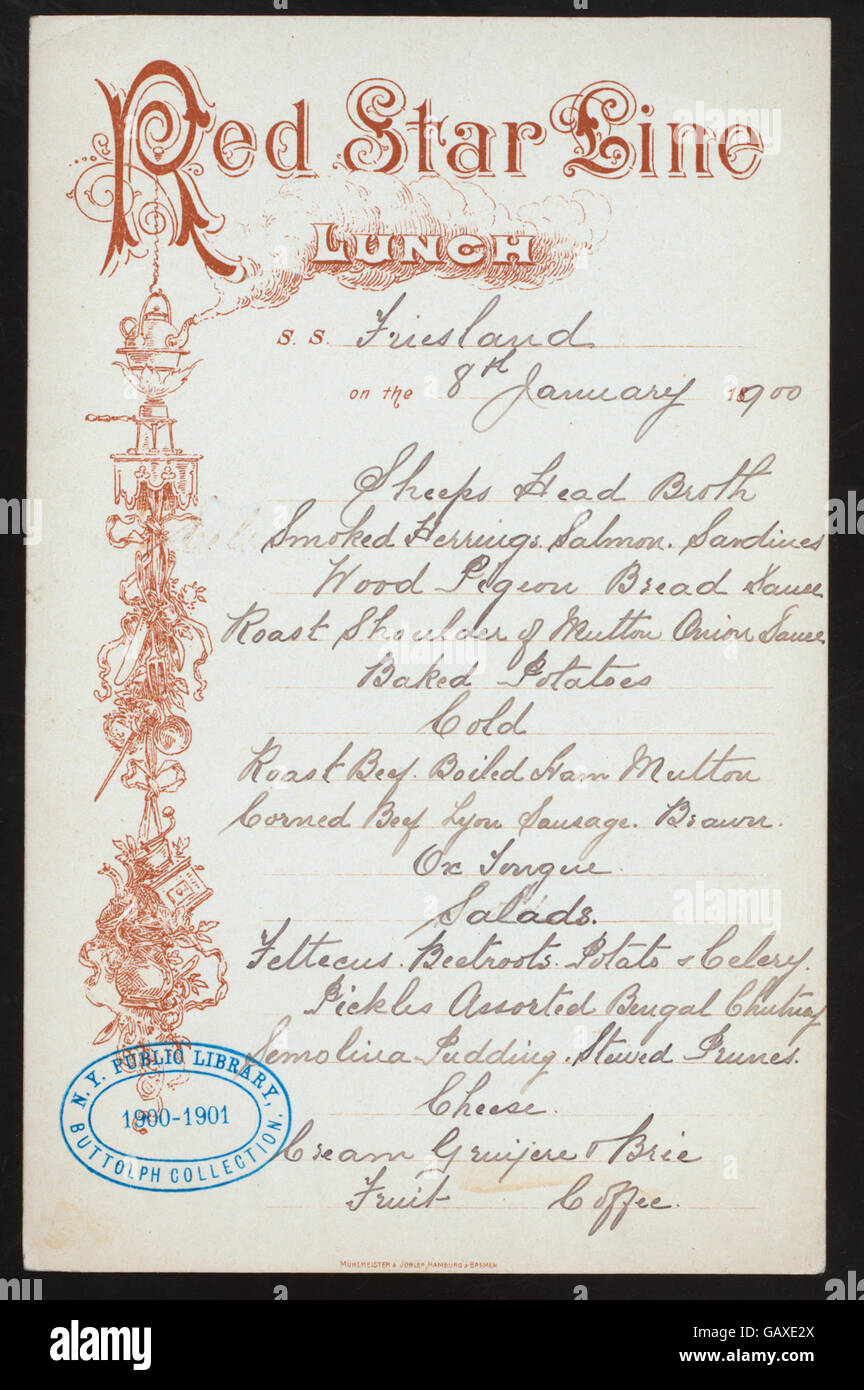 Red Star Line
LUNCH
S. S. Friesland
on the 8th January 1900
Sheeps Head Broth
Smoked Herrings. Salmon. Sardines
Wood Pigeon Bread Sauce
Roast Shoulder of Mutton Onion Sauce
Baked Potatoes
Cold
Roast Beef. Boiled Ham Mutton
Corned Beef Lyon Sausage. Brawn.
Ox Tongue.
Salads.
Fettecus. Beetroots. Potato & Celery.
Pickles Assorted Bengal Chutney
Semolina Pudding. Stewed Prunes.
Cheese.
Cream Gruyere & Brie
Fruit Coffee.
N. Y. PUBLIC LIBRARY,
1900-1901
BUTTOLPH COLLECTION.
MÜHLMEISTER & JOHLER, HAMBURG & BREMEN
alamy
Image ID: GAXE2X
www.alamy.com